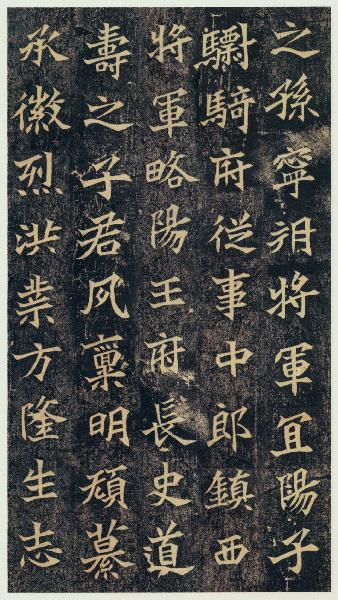 之孫寧朔將軍宜陽子
驃騎府從事中郎鎮西
將軍略陽王府長史道
壽之子君夙稟明頹纂
承徽烈洪業方隆生志